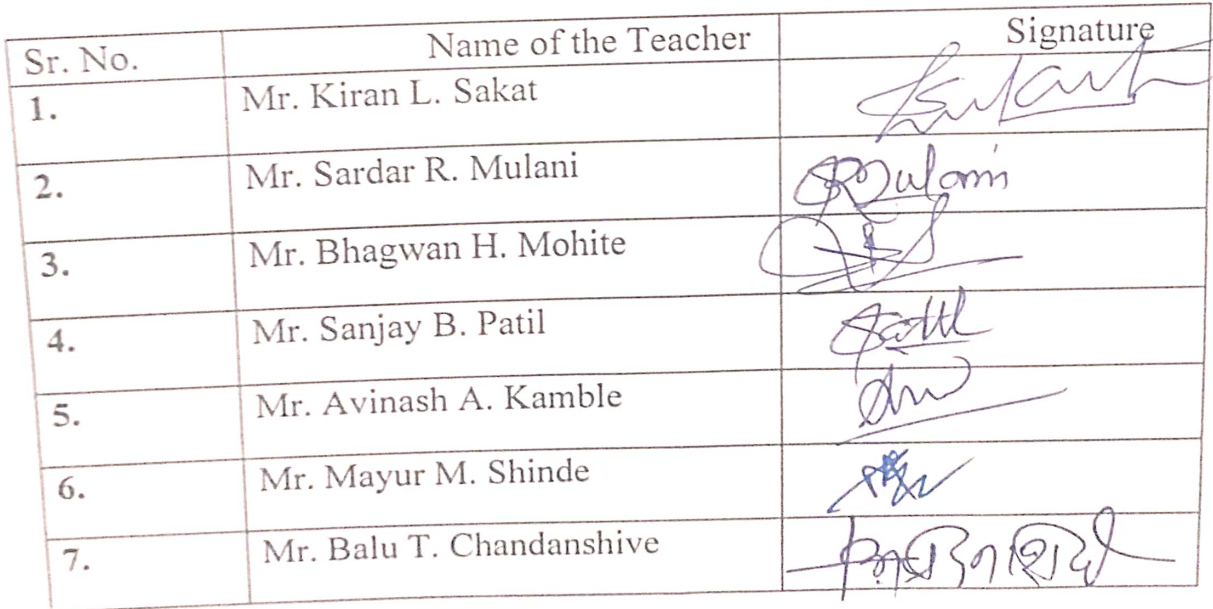 Sr. No. Name of the Teacher Signature
1. Mr. Kiran L. Sakat
2. Mr. Sardar R. Mulani Mulani
3. Mr. Bhagwan H. Mohite
4. Mr. Sanjay B. Patil
5. Mr. Avinash A. Kamble
6. Mr. Mayur M. Shinde
7. Mr. Balu T. Chandanshive